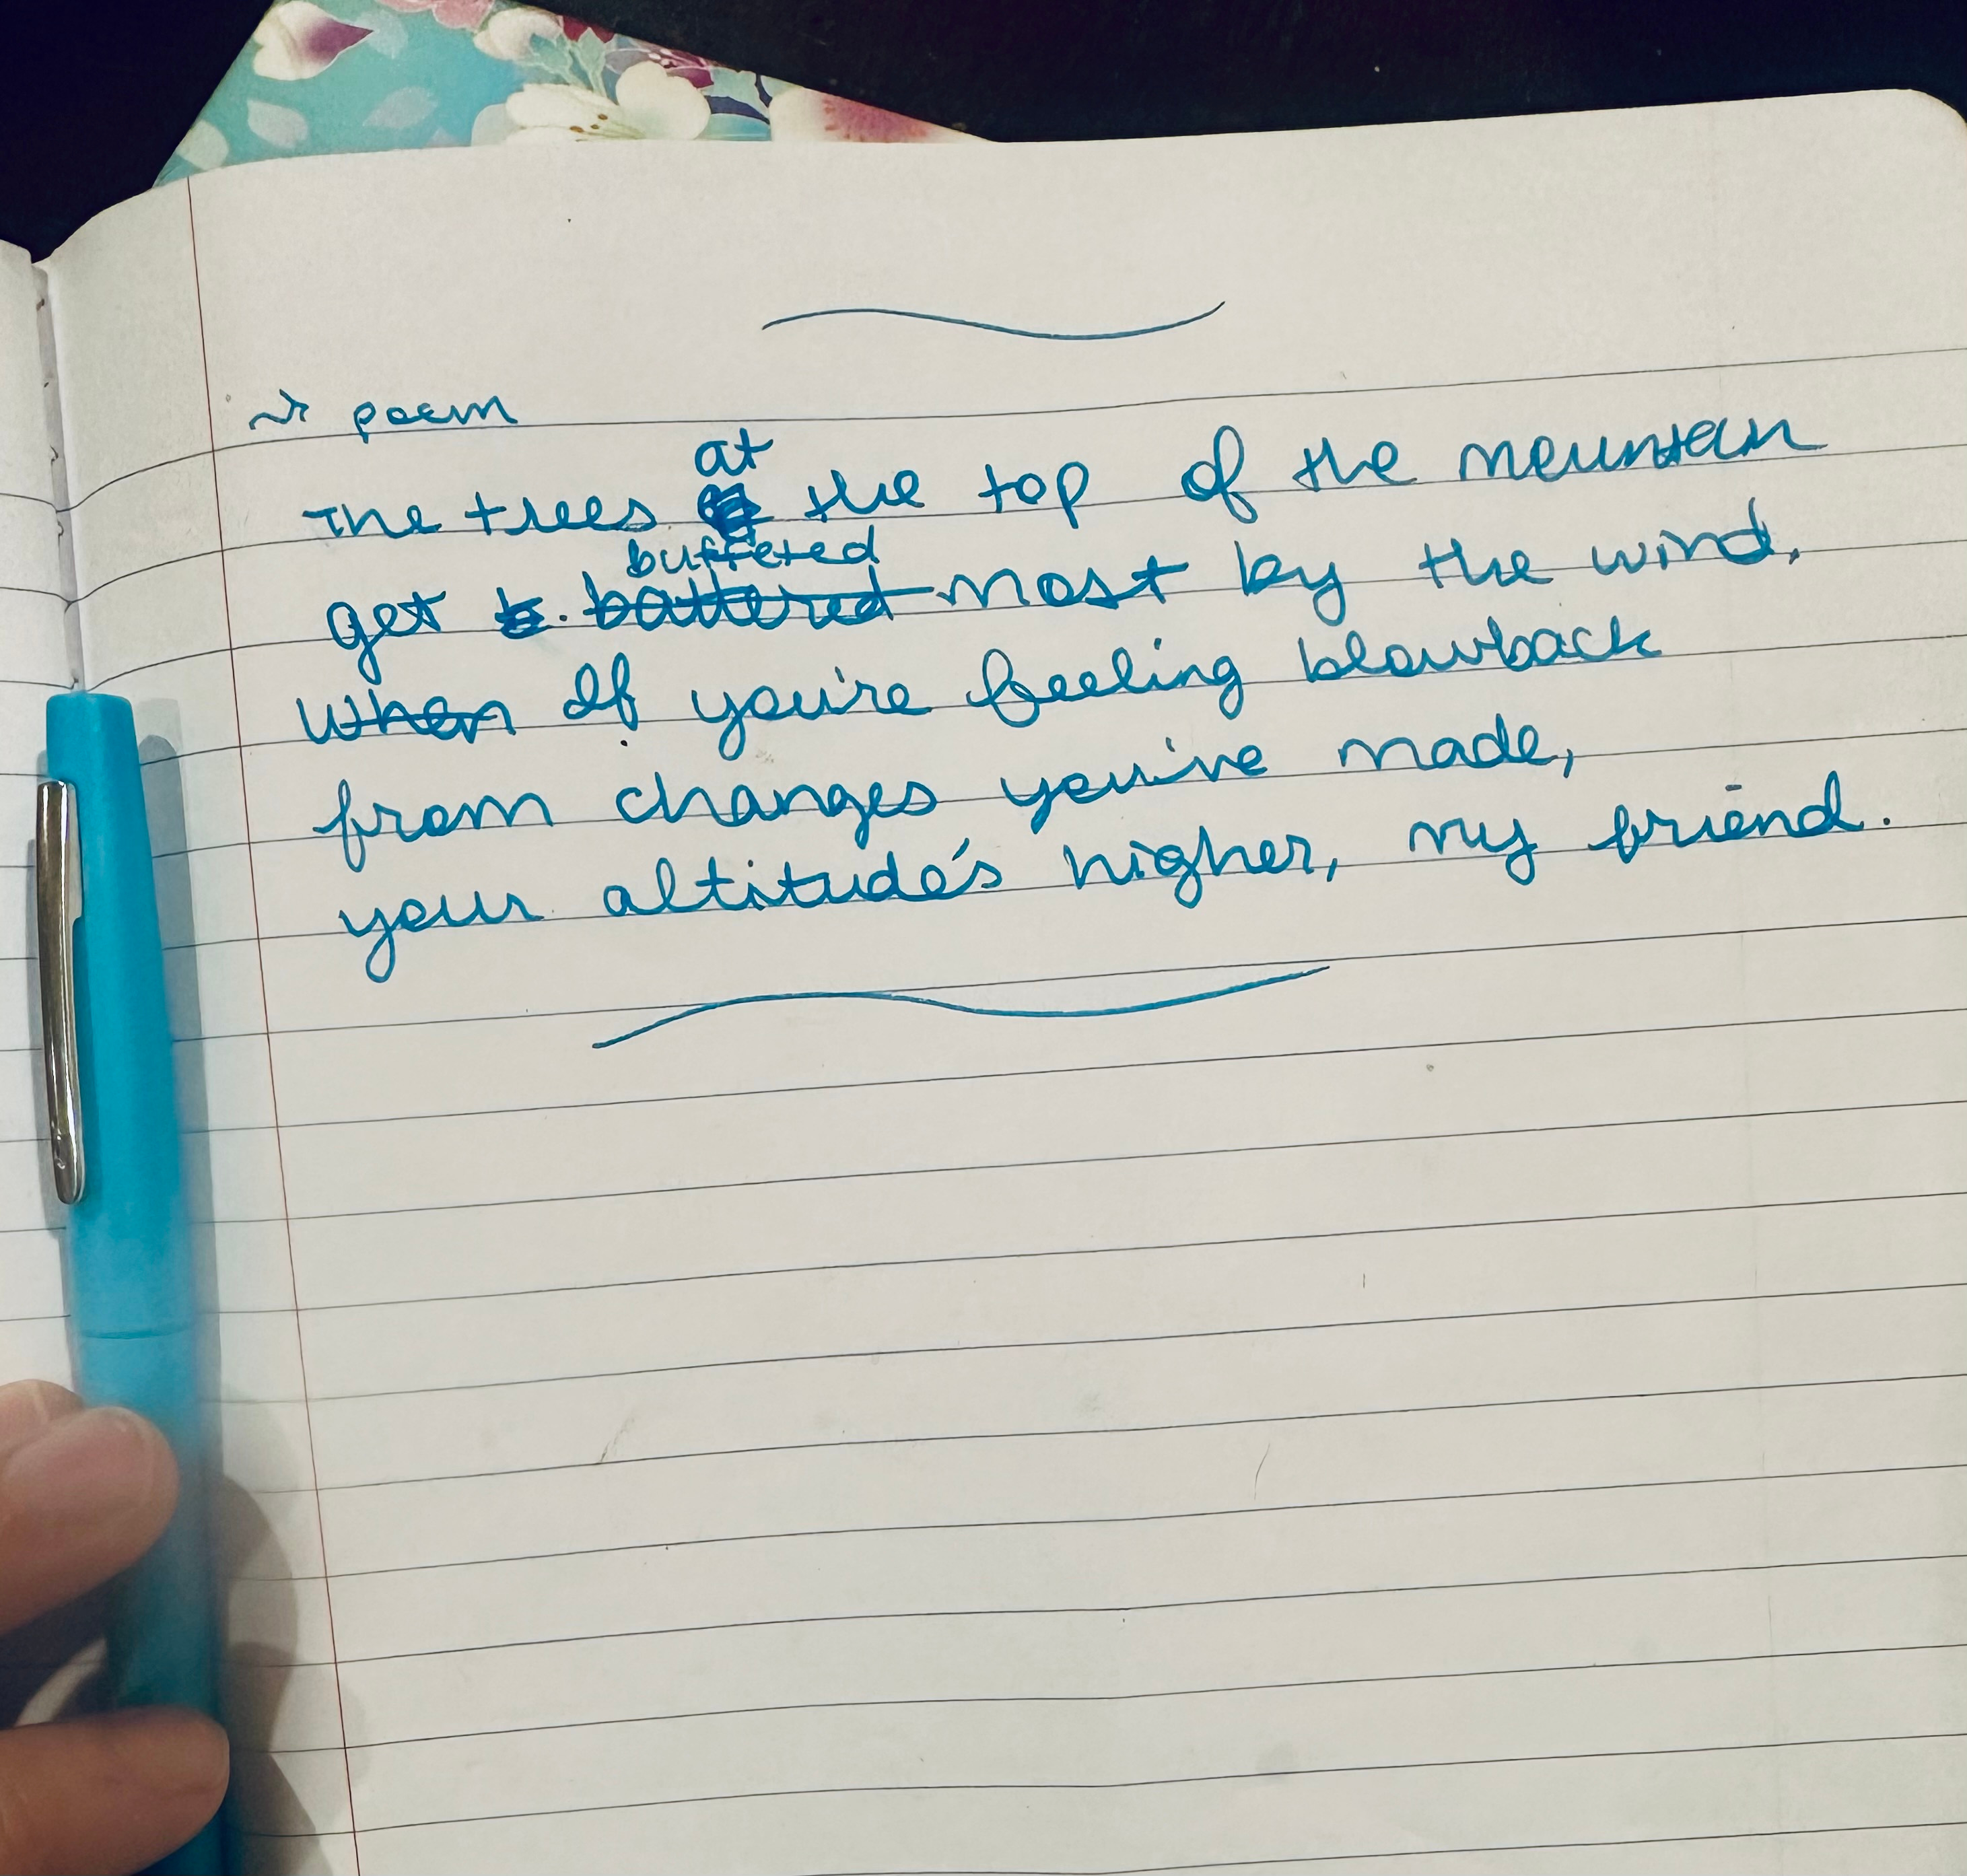 poem
The trees at the top of the mountain
get battered buffeted most by the wind.
When If you're feeling blowback
from changes you've made,
your altitude's higher, my friend.